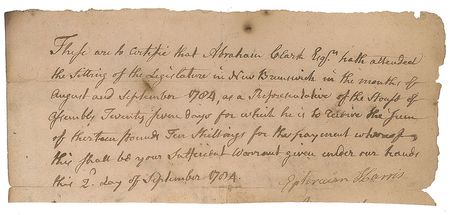 These are to certifie that Abraham Clark Esqr. hath attended
the Sitting of the Legislature in New Brunswick in the months of
August and September 1784, as a Representative of the House of
Assembly Twenty seven Days for which he is to receive the sum
of thirteen pounds Ten Shillings for the payment whereof
this shall be your Sufficient Warrant given under our hands
this 2d. day of September 1784.
Ephraim Harris